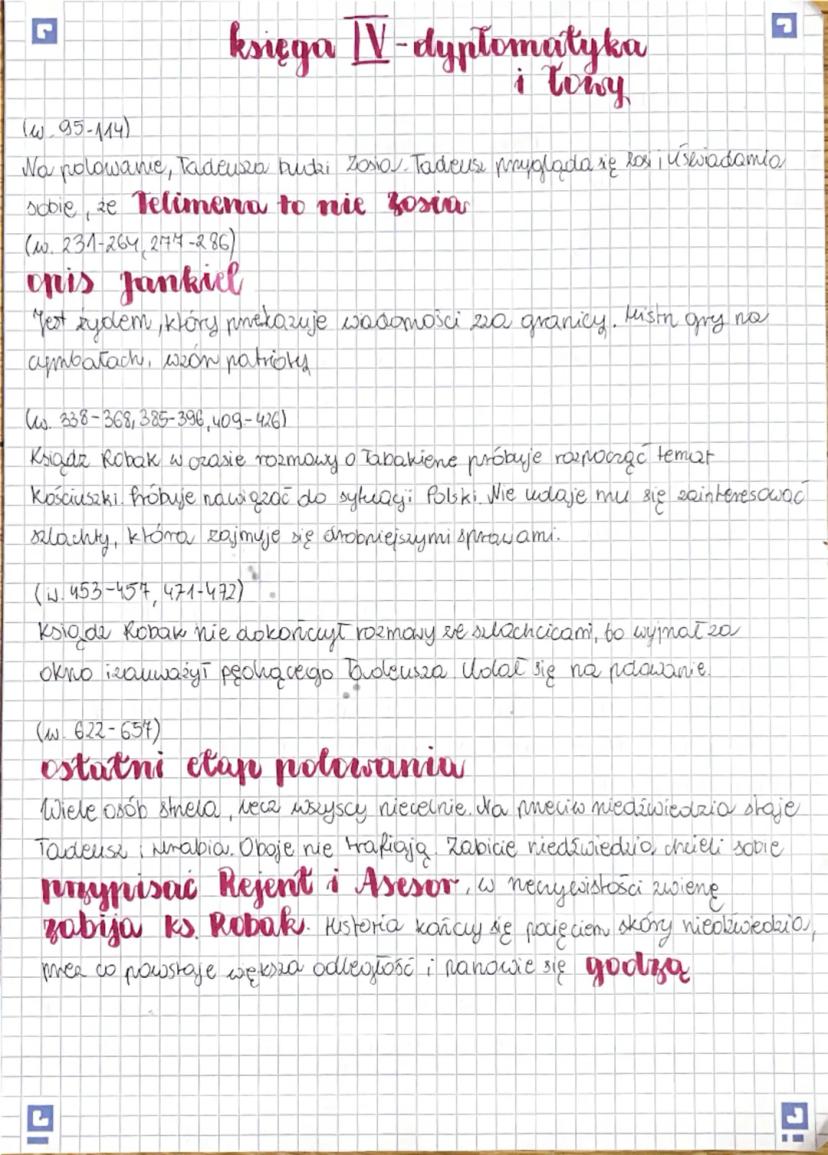 księga IV - dyplomatyka
i łowy
(w. 95-114)
Na polowanie, Tadeusza budzi Zosia. Tadeusz przygląda się Zosi i uświadamia
sobie, że Telimena to nie Zosia
(w. 231-264, 277-286)
opis Jankiel
Jest żydem, który przekazuje wiadomości zza granicy. Mistrz gry na
cymbałach, wzór patrioty
(w. 338-368, 385-396, 409-426)
Ksiądz Robak w czasie rozmowy o Tabakierze próbuje rozpocząć temat
Kościuszki. Próbuje nawiązać do sytuacji Polski. Nie udaje mu się zainteresować
szlachty, która zajmuje się drobniejszymi sprawami.
(w. 453-457, 471-472)
Ksiądz Robak nie dokończył rozmowy ze szlachcicami, bo wyjrzał za
okno i zauważył pędzącego Tadeusza. Udał się na polowanie.
(w. 622-657)
ostatni etap polowania
Wiele osób strzela, lecz wszyscy niecelnie. Na przeciw niedźwiedzia staje
Tadeusz i Hrabia. Oboje nie trafiają. Zabicie niedźwiedzia, chcieli sobie
przypisać Rejent i Asesor, w rzeczywistości zwierzę
zabija ks. Robak. Historia kończy się pocięciem skóry niedźwiedzia,
przez co powstaje większa odległość i panowie się godzą